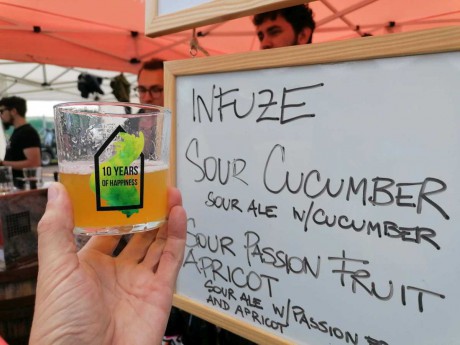 10 YEARS
OF HAPPINESS
INFUZE
SOUR CUCUMBER
SOUR ALE W/CUCUMBER
SOUR PASSION FRUIT
APRICOT
SOUR ALE W/ PASSION
AND APRICOT